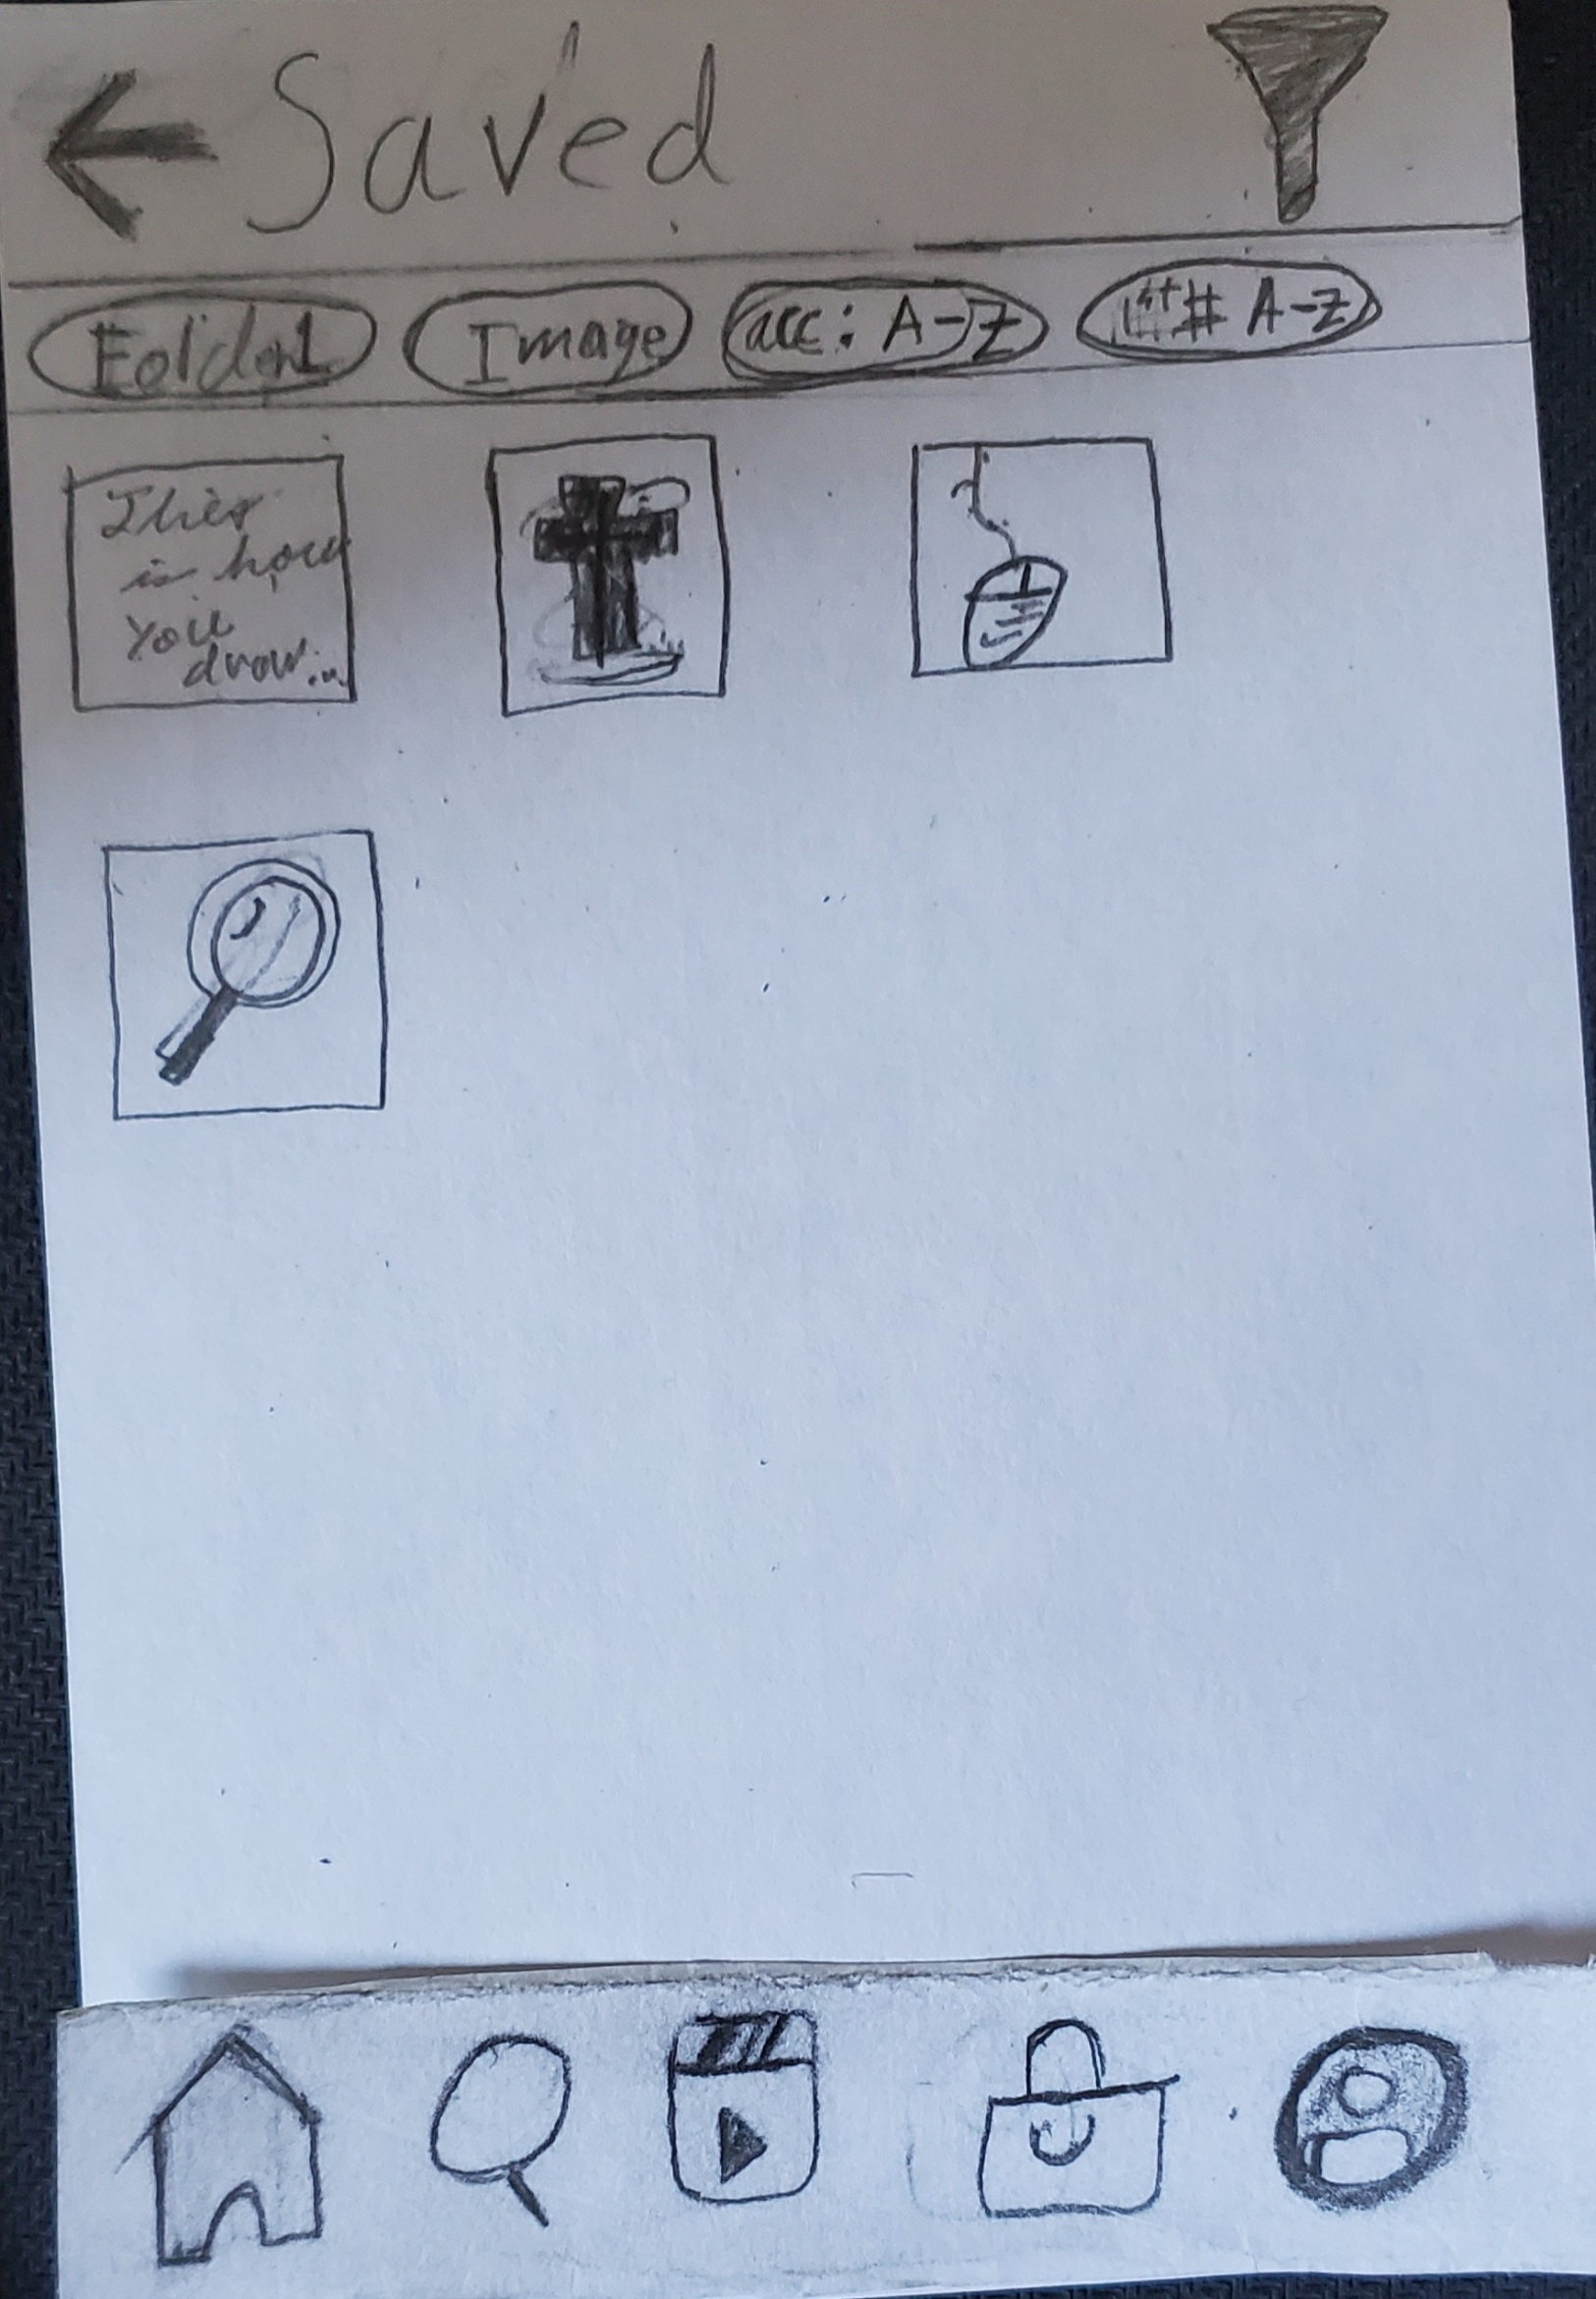 Saved
Folder1
Image
acc: A-Z
# A-Z
This
is how
you
draw...